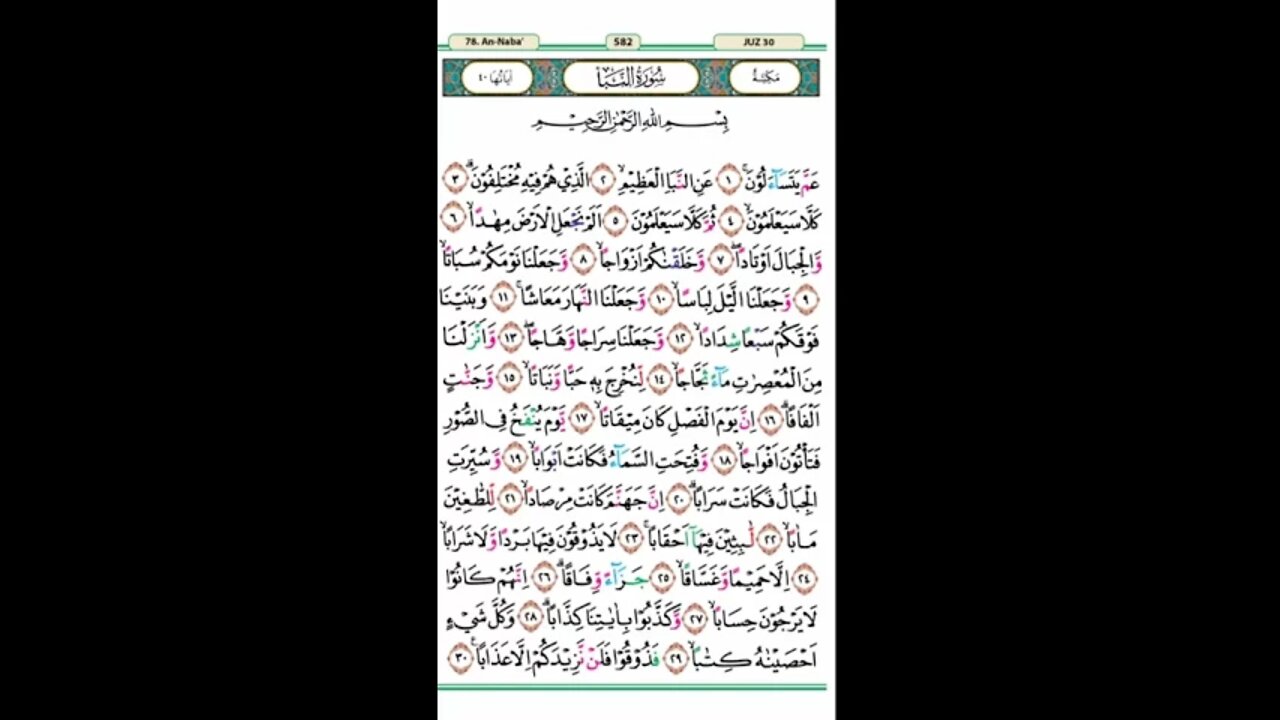 78. An-Naba'
582
JUZ 30
مَكِّيَّةٌ
سُوْرَةُ النَّبَاِ
اٰيَاتُهَا ٤٠
بِسْمِ اللّٰهِ الرَّحْمٰنِ الرَّحِيْمِ
عَمَّ يَتَسَاۤءَلُوْنَۚ ١ عَنِ النَّبَاِ الْعَظِيْمِۙ ٢ الَّذِيْ هُمْ فِيْهِ مُخْتَلِفُوْنَۗ ٣
كَلَّا سَيَعْلَمُوْنَۙ ٤ ثُمَّ كَلَّا سَيَعْلَمُوْنَ ٥ اَلَمْ نَجْعَلِ الْاَرْضَ مِهٰدًاۙ ٦
وَّالْجِبَالَ اَوْتَادًاۖ ٧ وَّخَلَقْنٰكُمْ اَزْوَاجًاۙ ٨ وَّجَعَلْنَا نَوْمَكُمْ سُبَاتًاۙ
٩ وَّجَعَلْنَا الَّيْلَ لِبَاسًاۙ ١٠ وَّجَعَلْنَا النَّهَارَ مَعَاشًاۚ ١١ وَبَنَيْنَا
فَوْقَكُمْ سَبْعًا شِدَادًاۙ ١٢ وَّجَعَلْنَا سِرَاجًا وَّهَّاجًاۖ ١٣ وَّاَنْزَلْنَا
مِنَ الْمُعْصِرٰتِ مَاۤءً ثَجَّاجًاۙ ١٤ لِّنُخْرِجَ بِهٖ حَبًّا وَّنَبَاتًاۙ ١٥ وَّجَنّٰتٍ
اَلْفَافًاۗ ١٦ اِنَّ يَوْمَ الْفَصْلِ كَانَ مِيْقَاتًاۙ ١٧ يَّوْمَ يُنْفَخُ فِى الصُّوْرِ
فَتَأْتُوْنَ اَفْوَاجًاۙ ١٨ وَّفُتِحَتِ السَّمَاۤءُ فَكَانَتْ اَبْوَابًاۙ ١٩ وَّسُيِّرَتِ
الْجِبَالُ فَكَانَتْ سَرَابًاۗ ٢٠ اِنَّ جَهَنَّمَ كَانَتْ مِرْصَادًاۙ ٢١ لِّلطّٰغِيْنَ
مَاٰبًاۙ ٢٢ لّٰبِثِيْنَ فِيْهَآ اَحْقَابًاۚ ٢٣ لَا يَذُوْقُوْنَ فِيْهَا بَرْدًا وَّلَا شَرَابًاۙ
٢٤ اِلَّا حَمِيْمًا وَّغَسَّاقًاۙ ٢٥ جَزَاۤءً وِّفَاقًاۗ ٢٦ اِنَّهُمْ كَانُوْا
لَا يَرْجُوْنَ حِسَابًاۙ ٢٧ وَّكَذَّبُوْا بِاٰيٰتِنَا كِذَّابًاۗ ٢٨ وَكُلَّ شَيْءٍ
اَحْصَيْنٰهُ كِتٰبًاۙ ٢٩ فَذُوْقُوْا فَلَنْ نَّزِيْدَكُمْ اِلَّا عَذَابًاۚ ٣٠